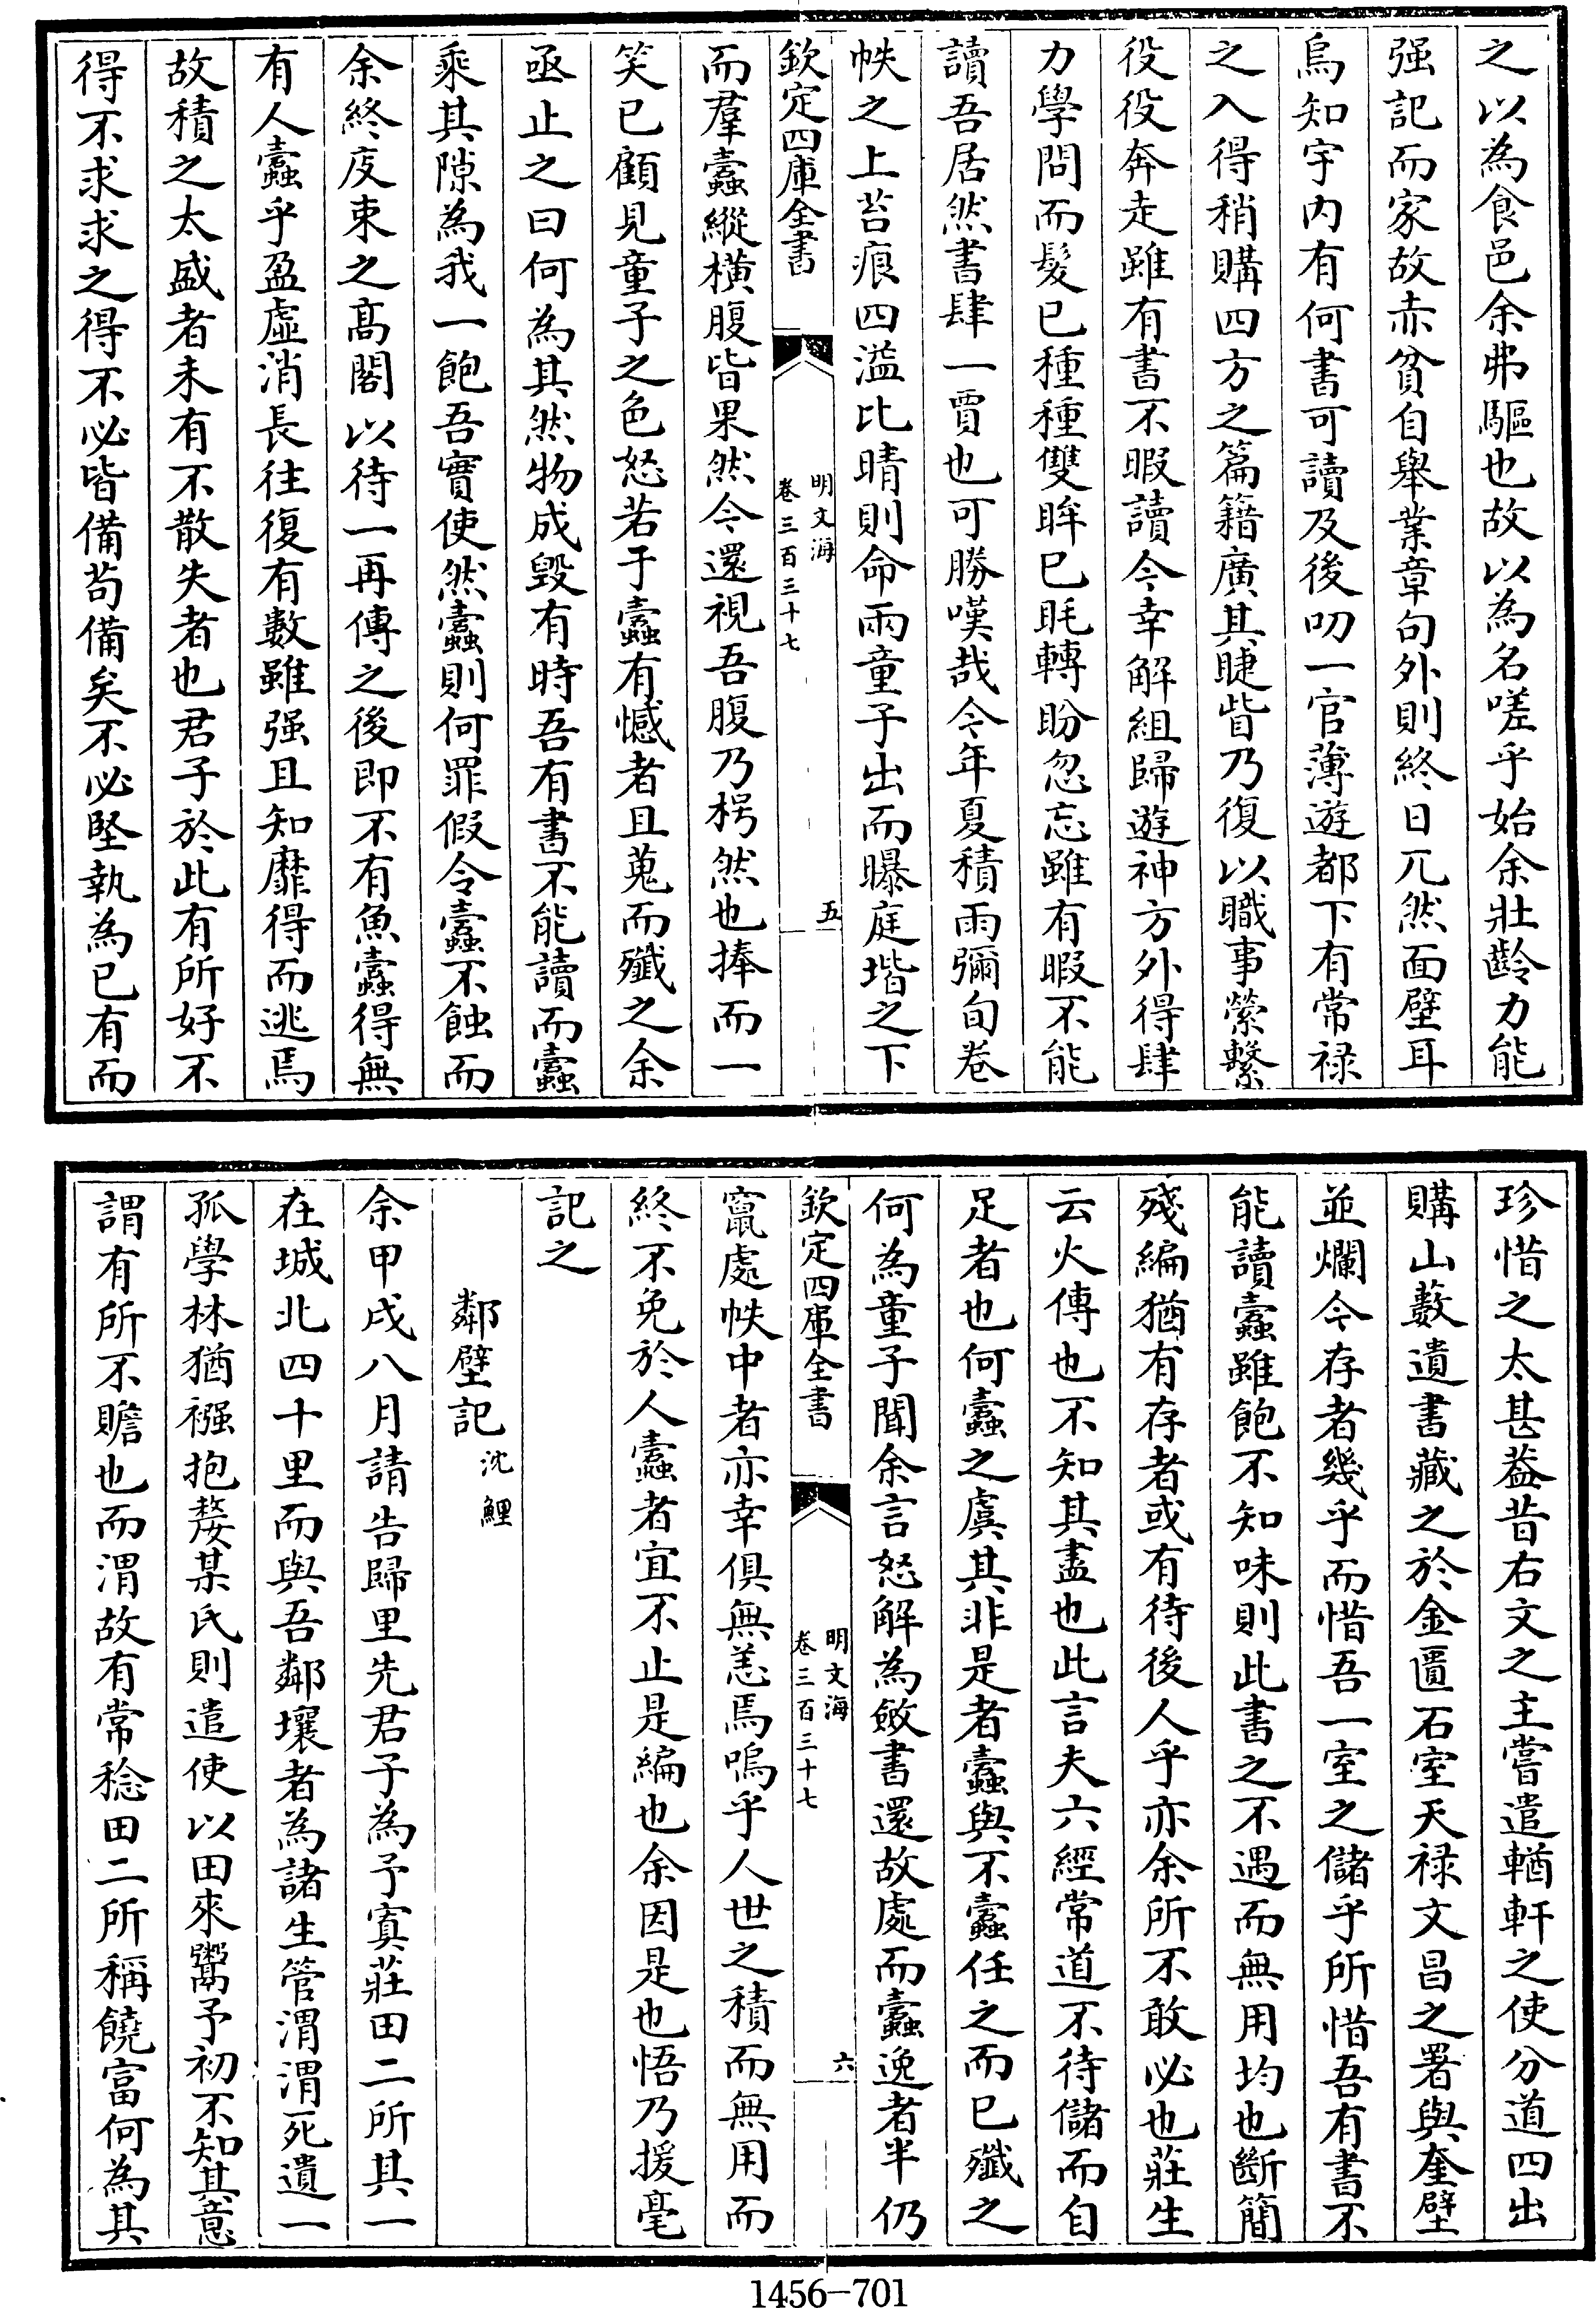 之以為食邑余弗驅也故以為名嗟乎始余壯齡力能
强記而家故赤貧自舉業章句外則終日兀然面壁耳
烏知宇内有何書可讀及後叨一官薄遊都下有常禄
之入得稍購四方之篇籍廣其睫眥乃復以職事縈繫
役役奔走雖有書不暇讀今幸解組歸遊神方外得肆
力學問而髮已種種雙眸已眊轉盼忽忘雖有暇不能
讀吾居然書肆一賈也可勝嘆哉今年夏積雨彌旬卷
帙之上苔痕四溢比晴則命兩童子出而曝庭堦之下
欽定四庫全書
明文海
卷三百三十七
五
而羣蠧縱横腹皆果然今還視吾腹乃枵然也捧而一
笑已顧見童子之色怒若于蠧有憾者且蒐而殲之余
亟止之曰何為其然物成毀有時吾有書不能讀而蠧
乘其隙為我一飽吾實使然蠧則何罪假令蠧不蝕而
余終庋束之高閣以待一再傳之後即不有魚蠧得無
有人蠧乎盈虛消長往復有數雖强且知靡得而逃焉
故積之太盛者未有不散失者也君子於此有所好不
得不求求之得不必皆備茍備矣不必堅執為已有而
珍惜之太甚葢昔右文之主嘗遣輶軒之使分道四出
購山藪遺書藏之於金匱石室天禄文昌之署與奎壁
並爛今存者幾乎而惜吾一室之儲乎所惜吾有書不
能讀蠧雖飽不知味則此書之不遇而無用均也斷簡
殘編猶有存者或有待後人乎亦余所不敢必也莊生
云火傳也不知其盡也此言夫六經常道不待儲而自
足者也何蠧之虞其非是者蠧與不蠧任之而已殲之
何為童子聞余言怒解為斂書還故處而蠧逸者半仍
欽定四庫全書
明文海
卷三百三十七
六
竄處帙中者亦幸俱無恙焉嗚乎人世之積而無用而
終不免於人蠧者宜不止是編也余因是也悟乃援毫
記之
鄰壁記沈鯉
余甲戌八月請告歸里先君子為予寘莊田二所其一
在城北四十里而與吾鄰壤者為諸生管渭渭死遺一
孤學林猶襁抱嫠某氏則遣使以田來鬻予初不知其意
謂有所不贍也而渭故有常稔田二所稱饒富何為其
1456-701